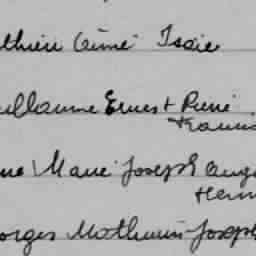 thieu Aimé Isaie
uillaume Ernest Pierre
Marie Joseph Aug
orges Mathurin Joseph